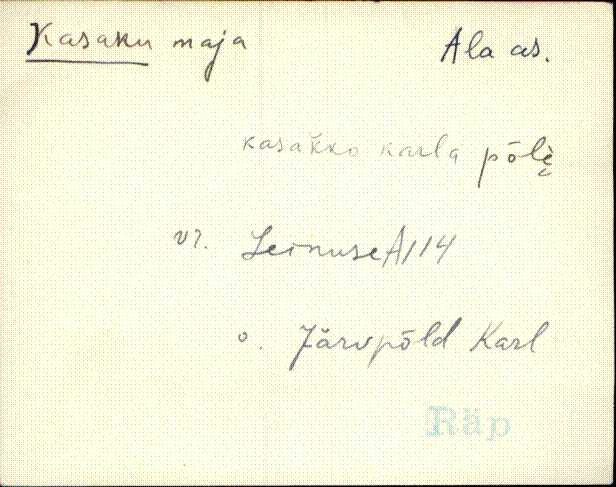 Kasaku maja Ala as.
kasakko karla põlè
vr. Leinuse A 114
o. Järvpõld Karl
Räp